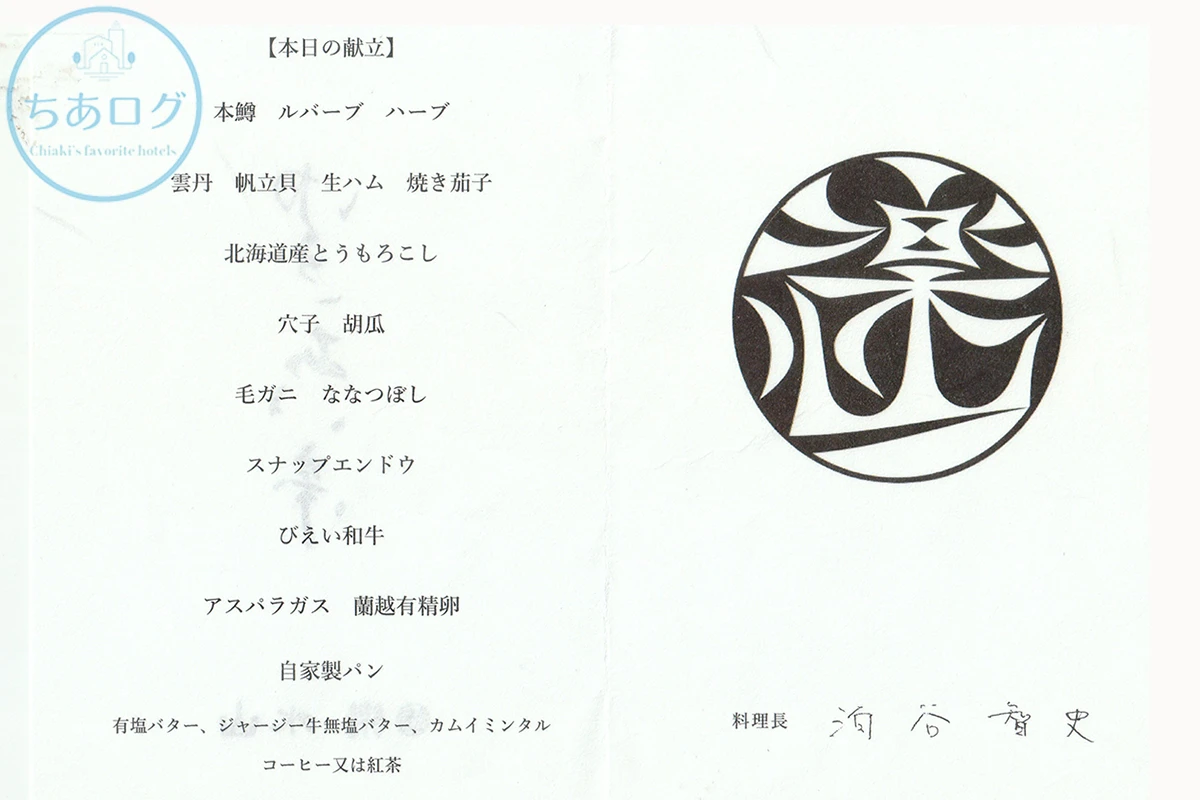 ちあログ
Chiaki's favorite hotels
【本日の献立】
本鱒　ルバーブ　ハーブ
雲丹　帆立貝　生ハム　焼き茄子
北海道産とうもろこし
穴子　胡瓜
毛ガニ　ななつぼし
スナップエンドウ
びえい和牛
アスパラガス　蘭越有精卵
自家製パン
有塩バター、ジャージー牛無塩バター、カムイミンタル
コーヒー又は紅茶
料理長　谷 智史